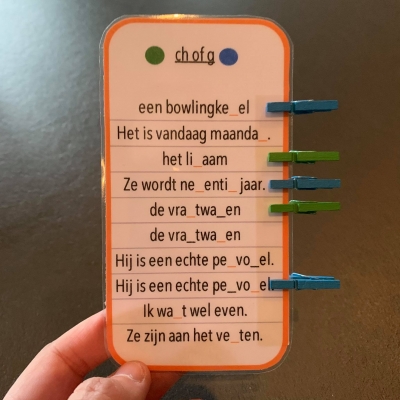 ch of g
een bowlingke_el
Het is vandaag maanda_.
het li_aam
Ze wordt ne_enti_ jaar.
de vra_twa_en
de vra_twa_en
Hij is een echte pe_vo_el.
Hij is een echte pe_vo_el.
Ik wa_t wel even.
Ze zijn aan het ve_ten.